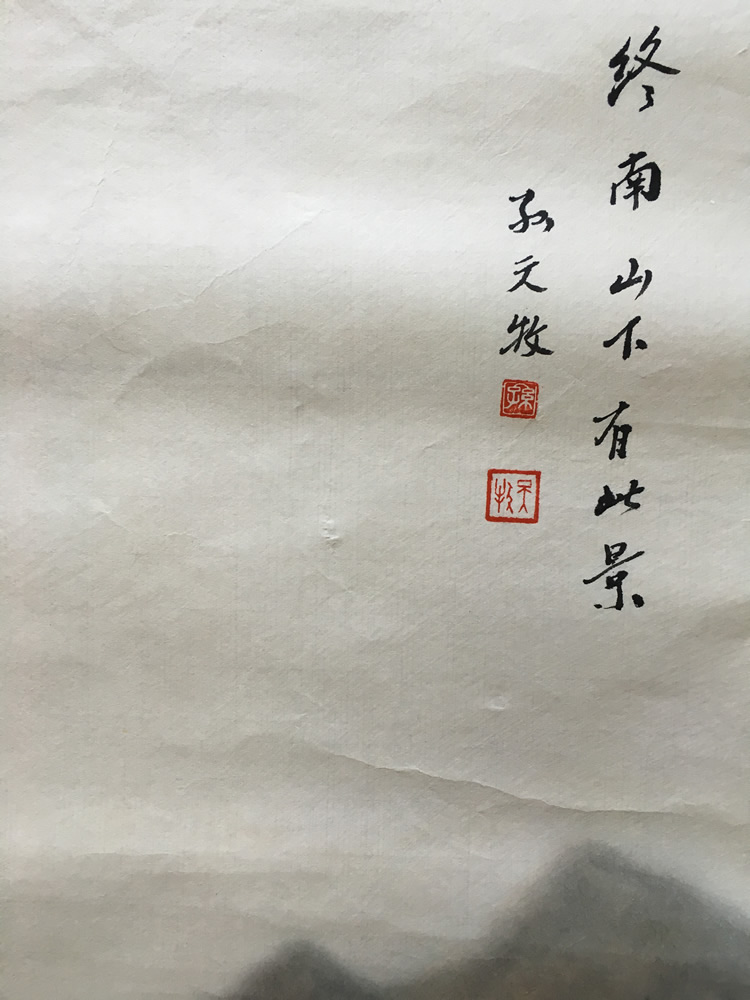 終南山下有此景
孫天牧
孫
天牧